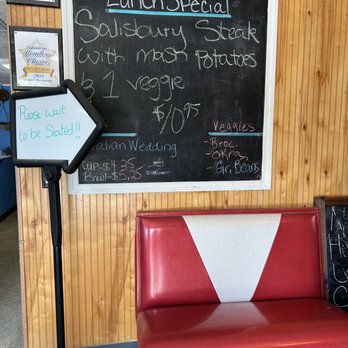 Lunch Special
Salisbury Steak
with mash Potatoes
& 1 veggie
$10.95
Veggies
- Broc.
- Okra
- Gr. Beans
Italian Wedding
Cup - $4.25
Bowl - $5.25
Readers
Choice
2021
Please Wait
to be Seated!!!